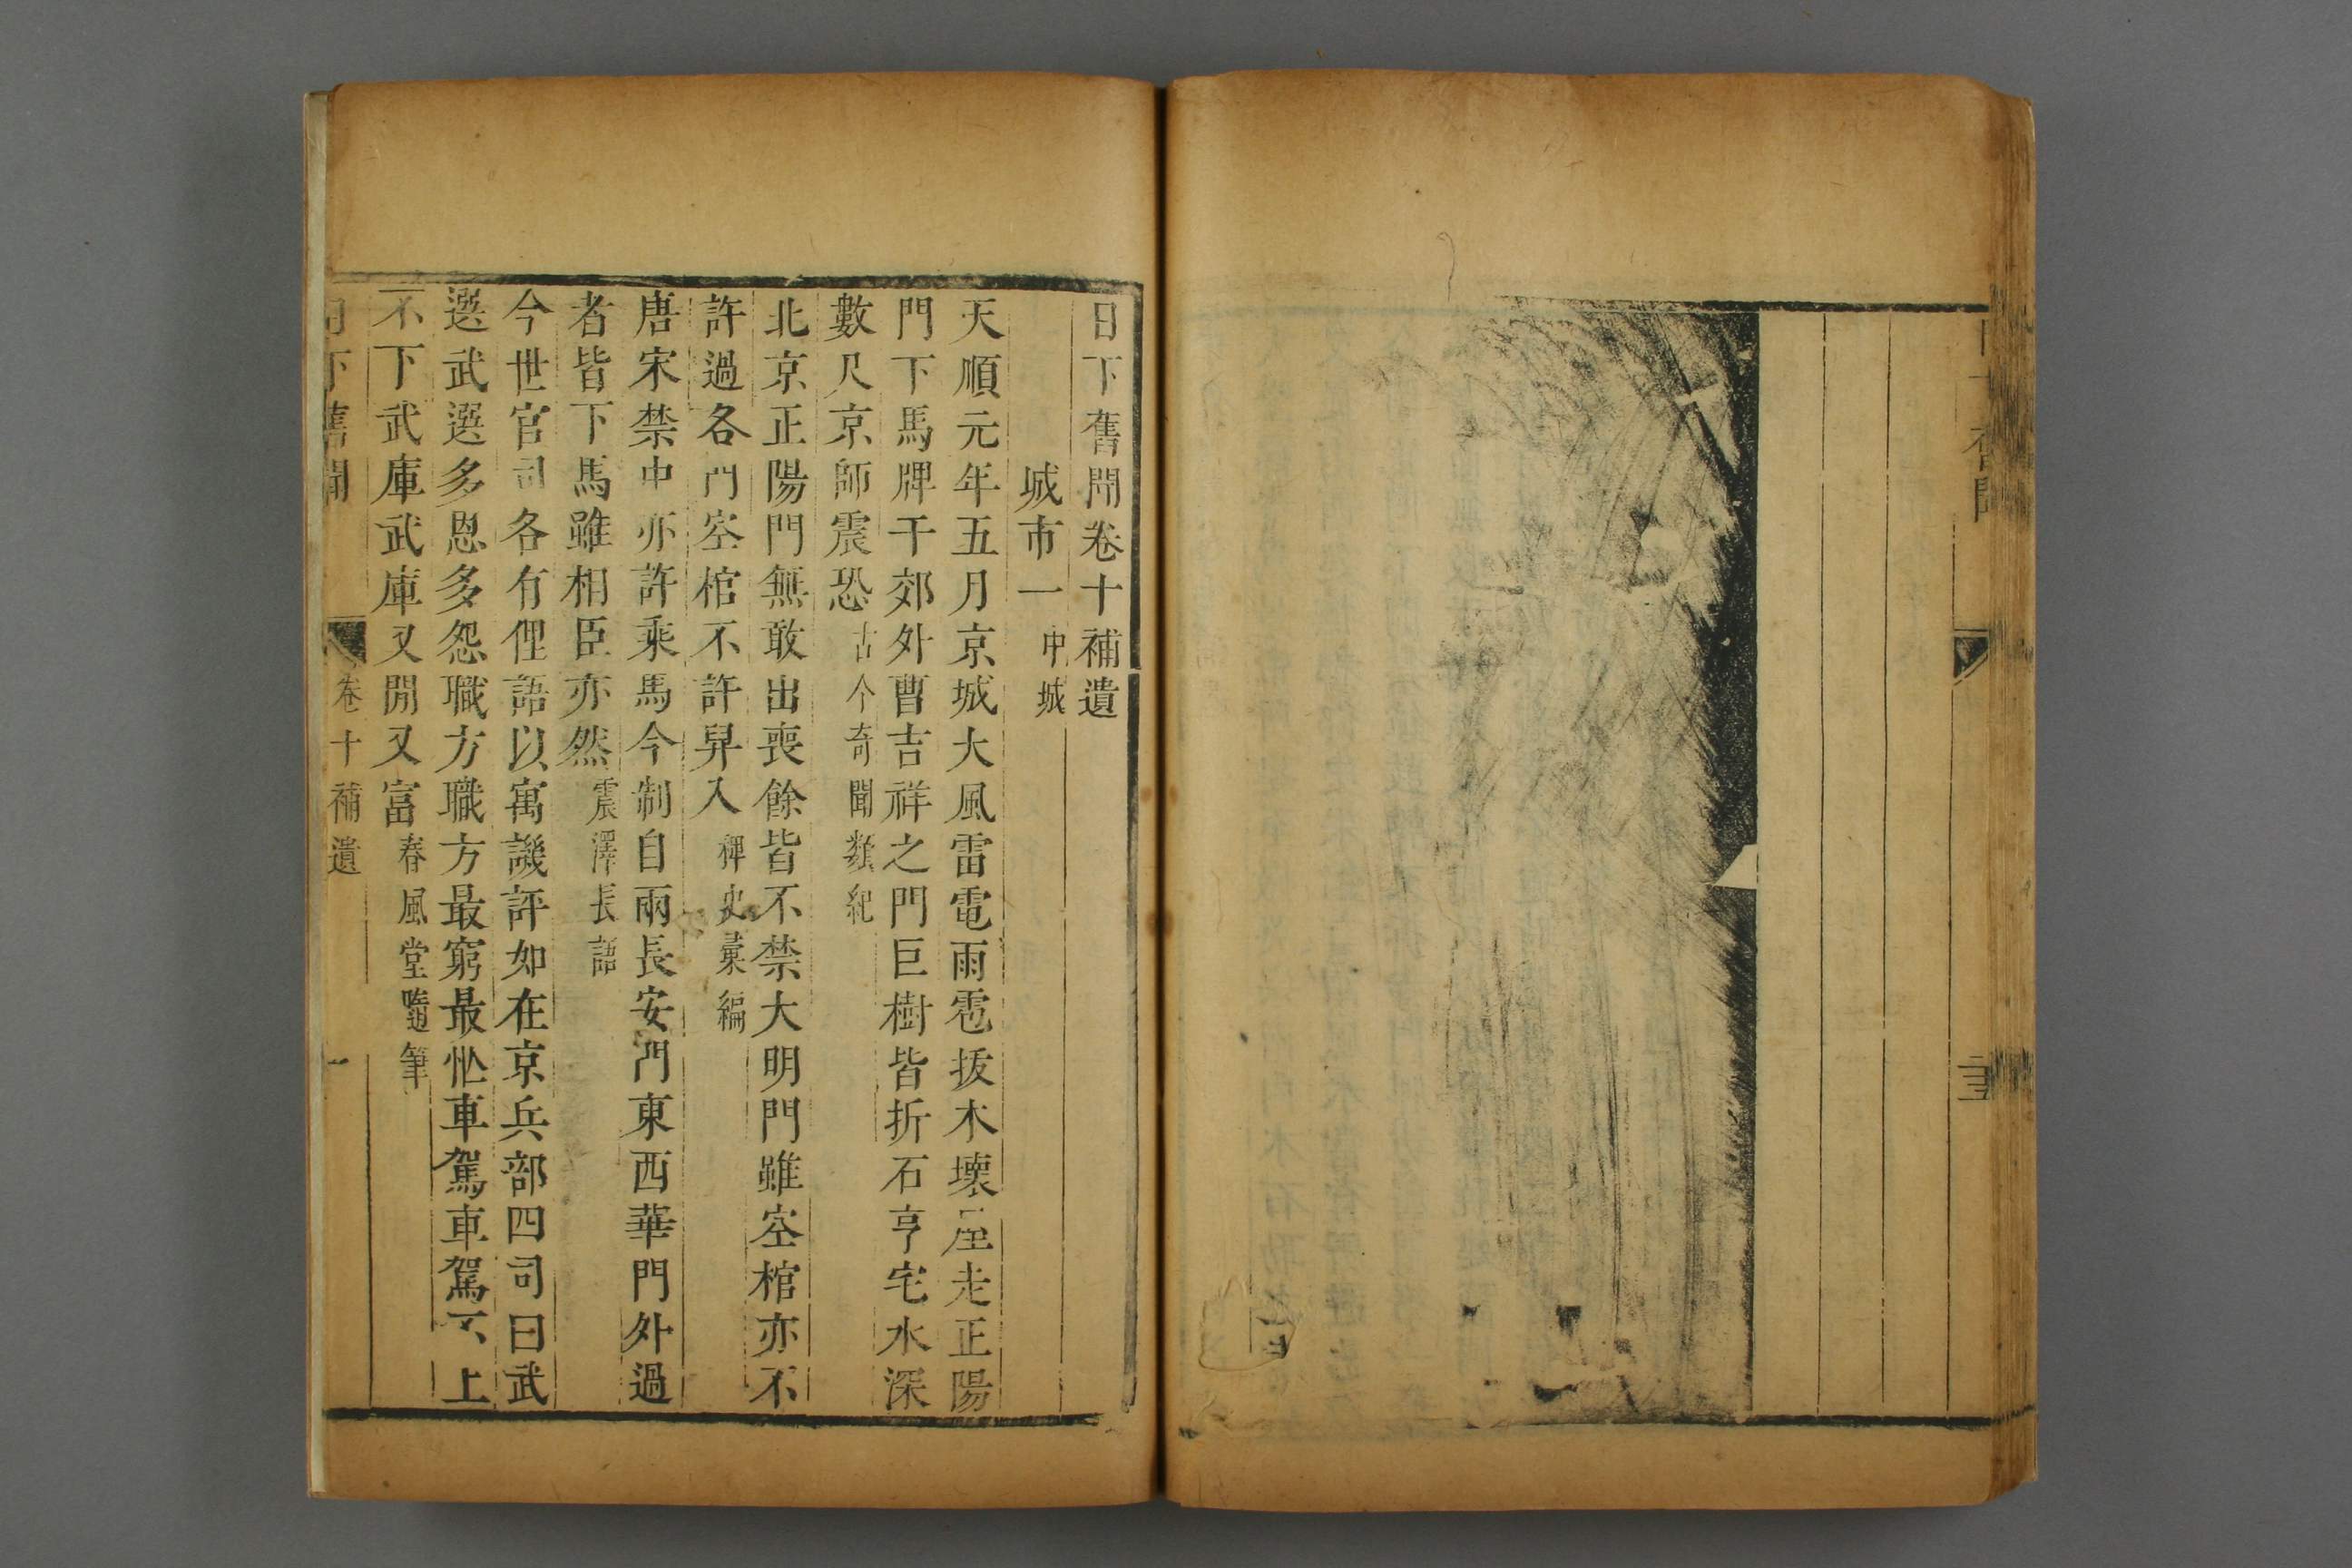 日下舊聞卷十補遺
城市一 中城
天順元年五月京城大風雷電雨雹拔木壞屋走正陽
門下馬牌于郊外曹吉祥之門巨樹皆折石亨宅水深
數尺京師震恐 古今奇聞類紀
北京正陽門無敢出喪餘皆不禁大明門雖空棺亦不
許過各門空棺不許舁入 稗史彙編
唐宋禁中亦許乘馬今制自兩長安門東西華門外過
者皆下馬雖相臣亦然 震澤長語
今世官司各有俚語以寓譏評如在京兵部四司曰武
選武選多恩多怨職方職方最窮最忙車駕車駕不上
不下武庫武庫又閒又富 春風堂隨筆
日下舊聞 卷十補遺 一